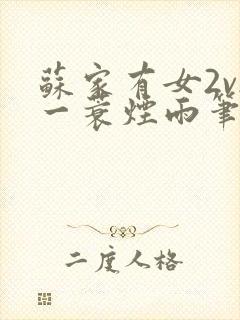 蘇家有女2v
一蓑煙雨筆
二度人格